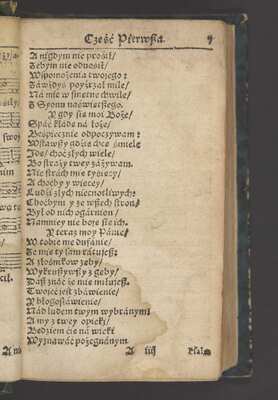 Część Pierwsza. 9
A nigdym nie prosił/
Żebym nie odnosił/
Wspomożenia twojego:
Zawżdyś pojyźrzał mile/
Na mię w smętne chwile/
Z Syonu naświętszego.
Y gdy się moi Boże/
Spać kładę na łoże/
Bespiecznie odpoczywam:
Wstawszy gdzie chcę śmiele
Idę/ choć złych wiele/
Bo straży twey zażywam.
Nie strách mię tyśięcy/
A choćby y więcey/
Ludzi złych niecnotliwych:
Choćbym y ze wszech stron/
Był od nich ogárnion/
Namniey nie boję się ich.
Y teraz moy Pánie/
W tobie me dufánie/
Że mię ty sam rátujesz:
A złośnikom zęby/
Wykruszywszy z gęby/
Dasz znáć że mię miłujesz.
Twoieć jest zbáwienie/
Y błogosłáwienie/
Nád ludem twym wybránym:
A my z twey opieki/
Będziem cię ná wieki
Wyznáwáć pożegnánym.
A iiij